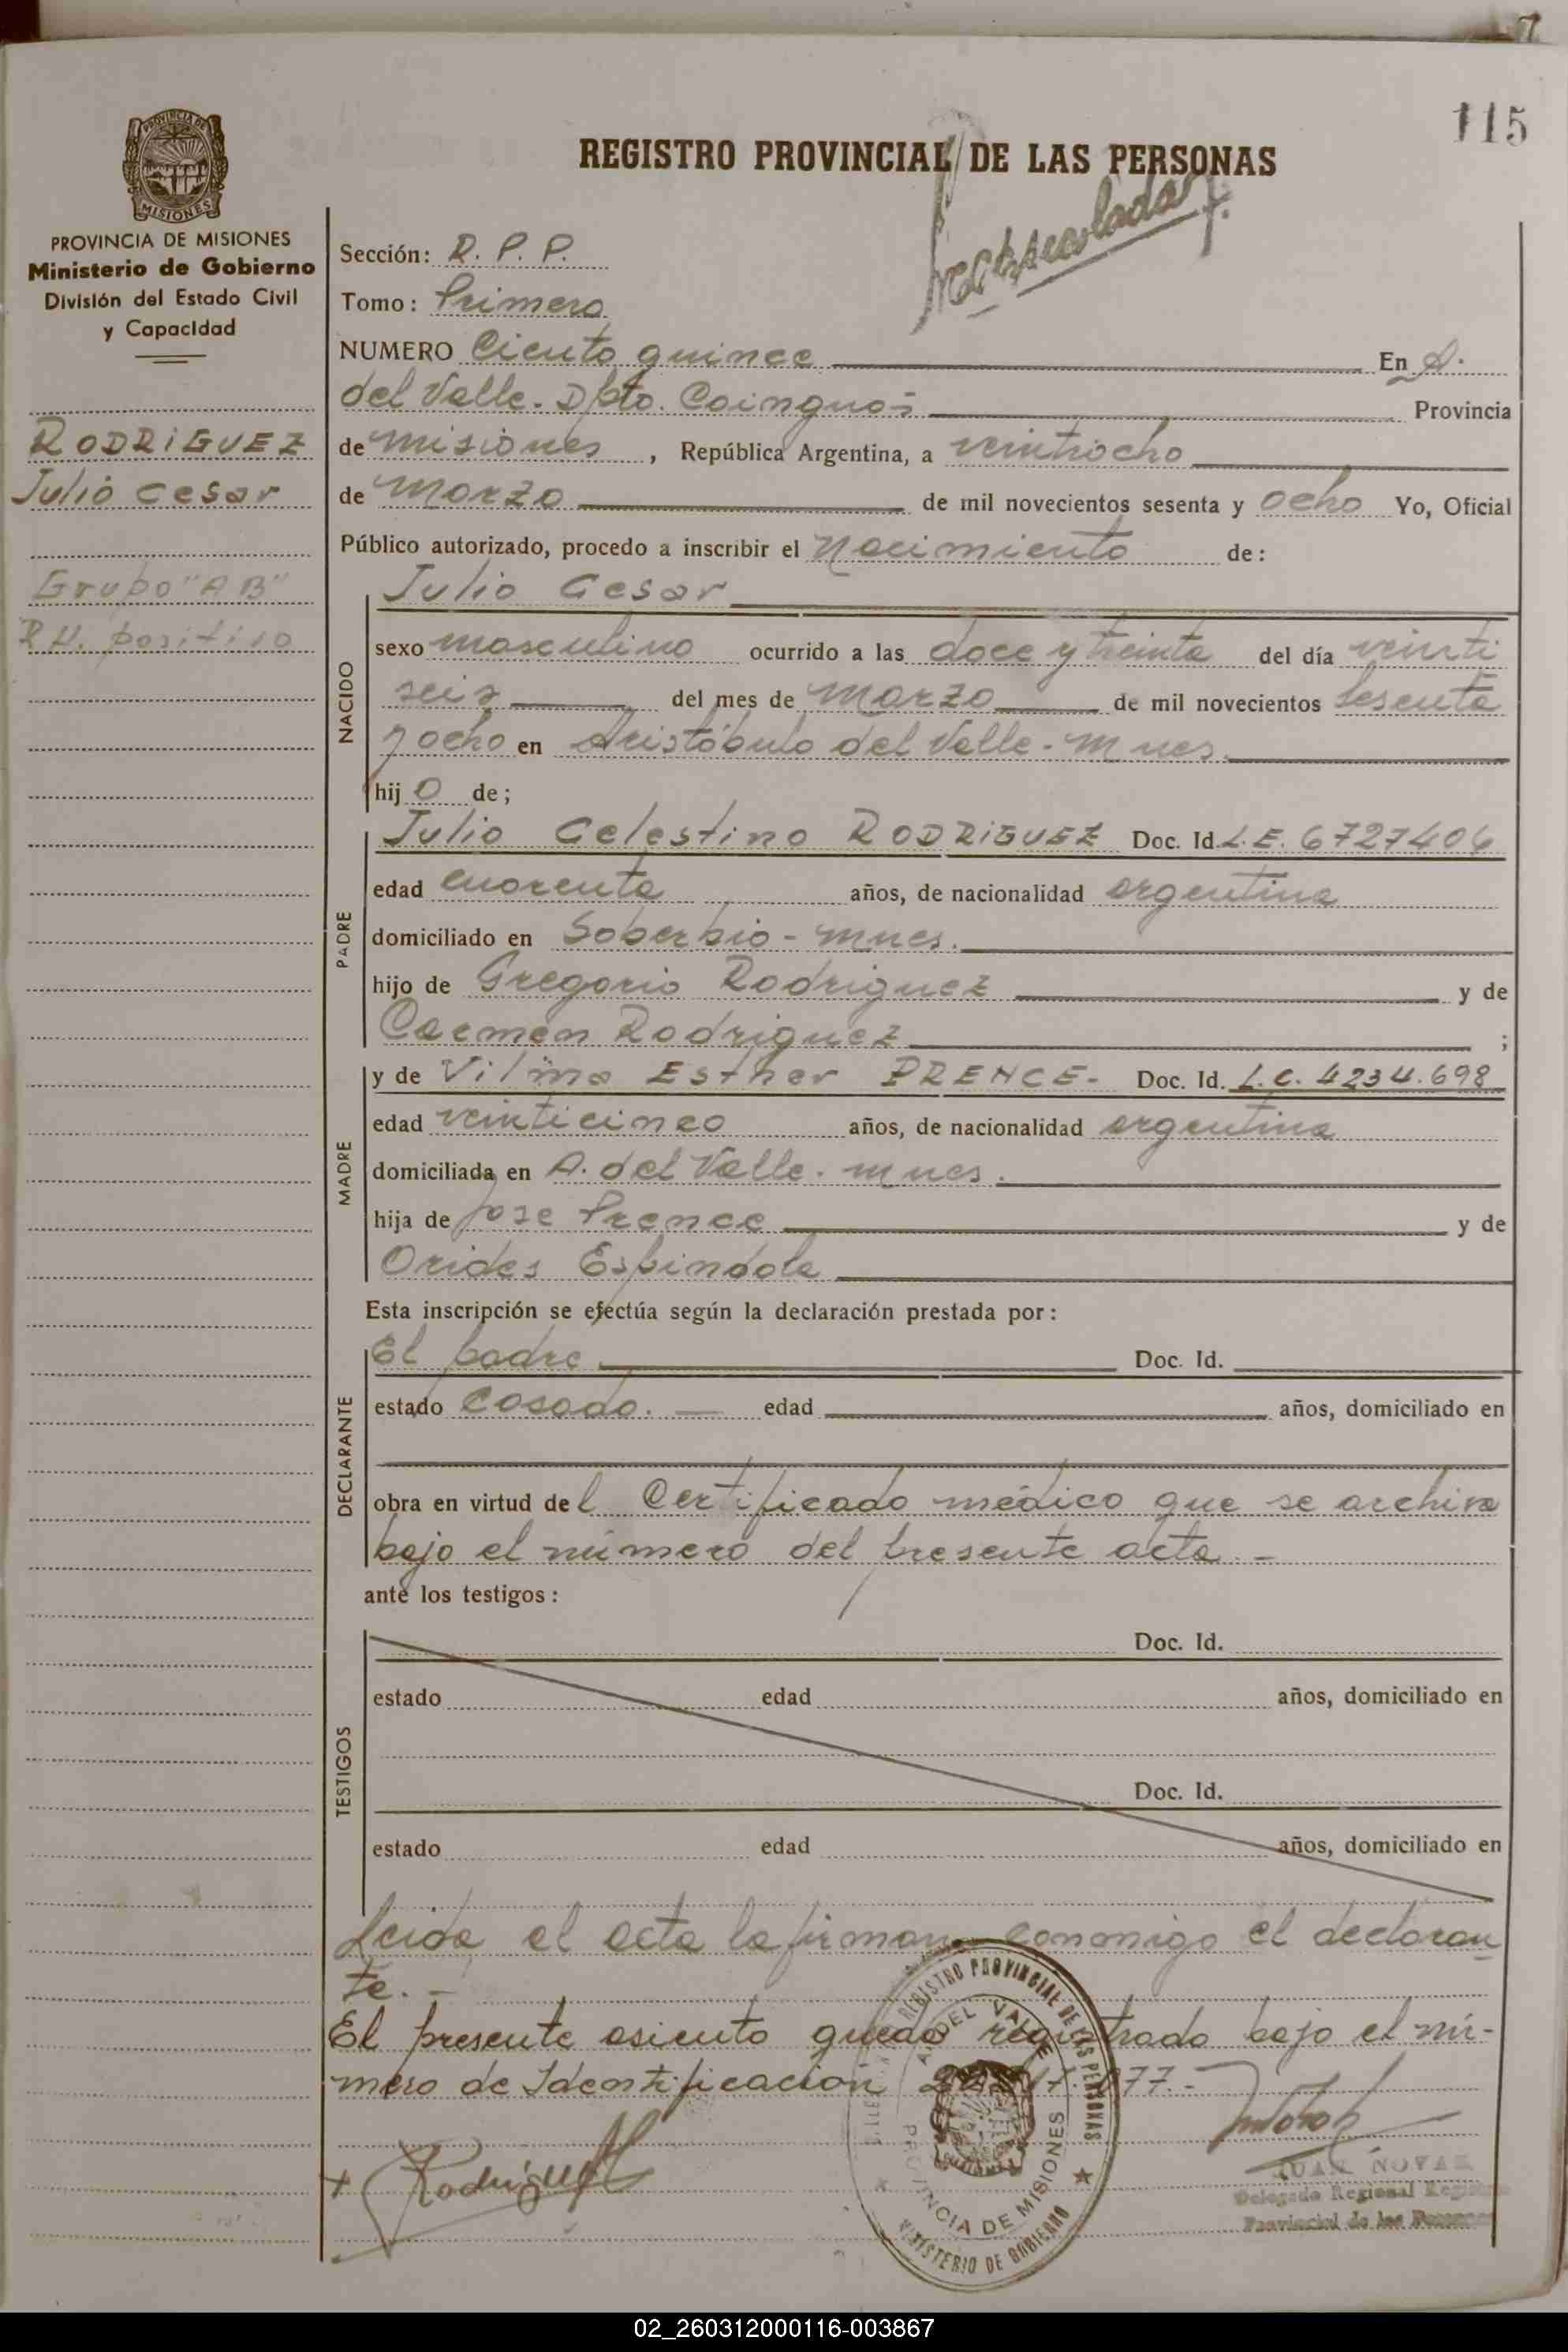 115
REGISTRO PROVINCIAL DE LAS PERSONAS
PROVINCIA DE
MISIONES
PROVINCIA DE MISIONES
Ministerio de Gobierno
División del Estado Civil
y Capacidad
RODRIGUEZ
Julio Cesar
Grupo "AB"
RH. positivo
Sección: R. P. P.
Tomo: Primero
NUMERO Ciento quince En A.
del Valle. Dpto. Cainguás Provincia
de Misiones, República Argentina, a veintiocho
de Marzo de mil novecientos sesenta y ocho Yo, Oficial
Público autorizado, procedo a inscribir el Nacimiento de:
NACIDO
Julio Cesar
sexo masculino ocurrido a las doce y treinta del día veinti
seis del mes de Marzo de mil novecientos sesenta
y ocho en Aristóbulo del Valle - Mnes.
hijo de;
PADRE
Julio Celestino RODRIGUEZ Doc. Id. L.E. 6727406
edad cuarenta años, de nacionalidad argentina
domiciliado en Soberbio - Mnes.
hijo de Gregorio Rodriguez y de
Carmen Rodriguez ;
MADRE
y de Vilma Esther PRENCE- Doc. Id. L.C. 4234.698
edad veinticinco años, de nacionalidad argentina
domiciliada en A. del Valle. Mnes.
hija de Jose Prence y de
Orides Espindola
Esta inscripción se efectúa según la declaración prestada por:
DECLARANTE
El padre. Doc. Id.
estado Casado. edad años, domiciliado en
obra en virtud del Certificado médico que se archiva
bajo el número del presente acta. -
ante los testigos:
TESTIGOS
Doc. Id.
estado edad años, domiciliado en
Doc. Id.
estado edad años, domiciliado en
Leida el acta la firman conmigo el declaran
te. -
El presente asiento queda registrado bajo el nú-
mero de Identificación 077.-
REGISTRO PROVINCIAL DE LAS PERSONAS
A. DEL VALLE
PROVINCIA DE MISIONES
MINISTERIO DE GOBIERNO
Rodriguez
JUAN NOVAK
Delegado Regional Registro
Provincial de las Personas
02_260312000116-003867